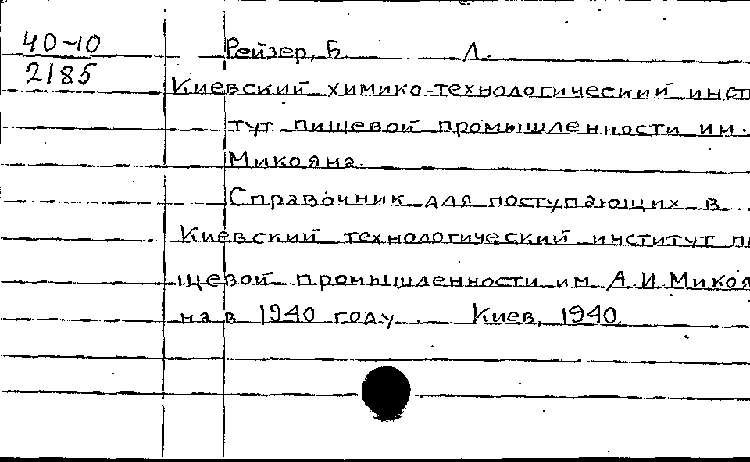 40-10
2185
Рейзер, Б. Л.
Киевский химико-технологический инст
тут пищевой промышленности им.
Микояна.
Справочник для поступающих в
Киевский технологический институт пи
щевой промышленности им. А.И.Микоя
на в 1940 году. Киев, 1940